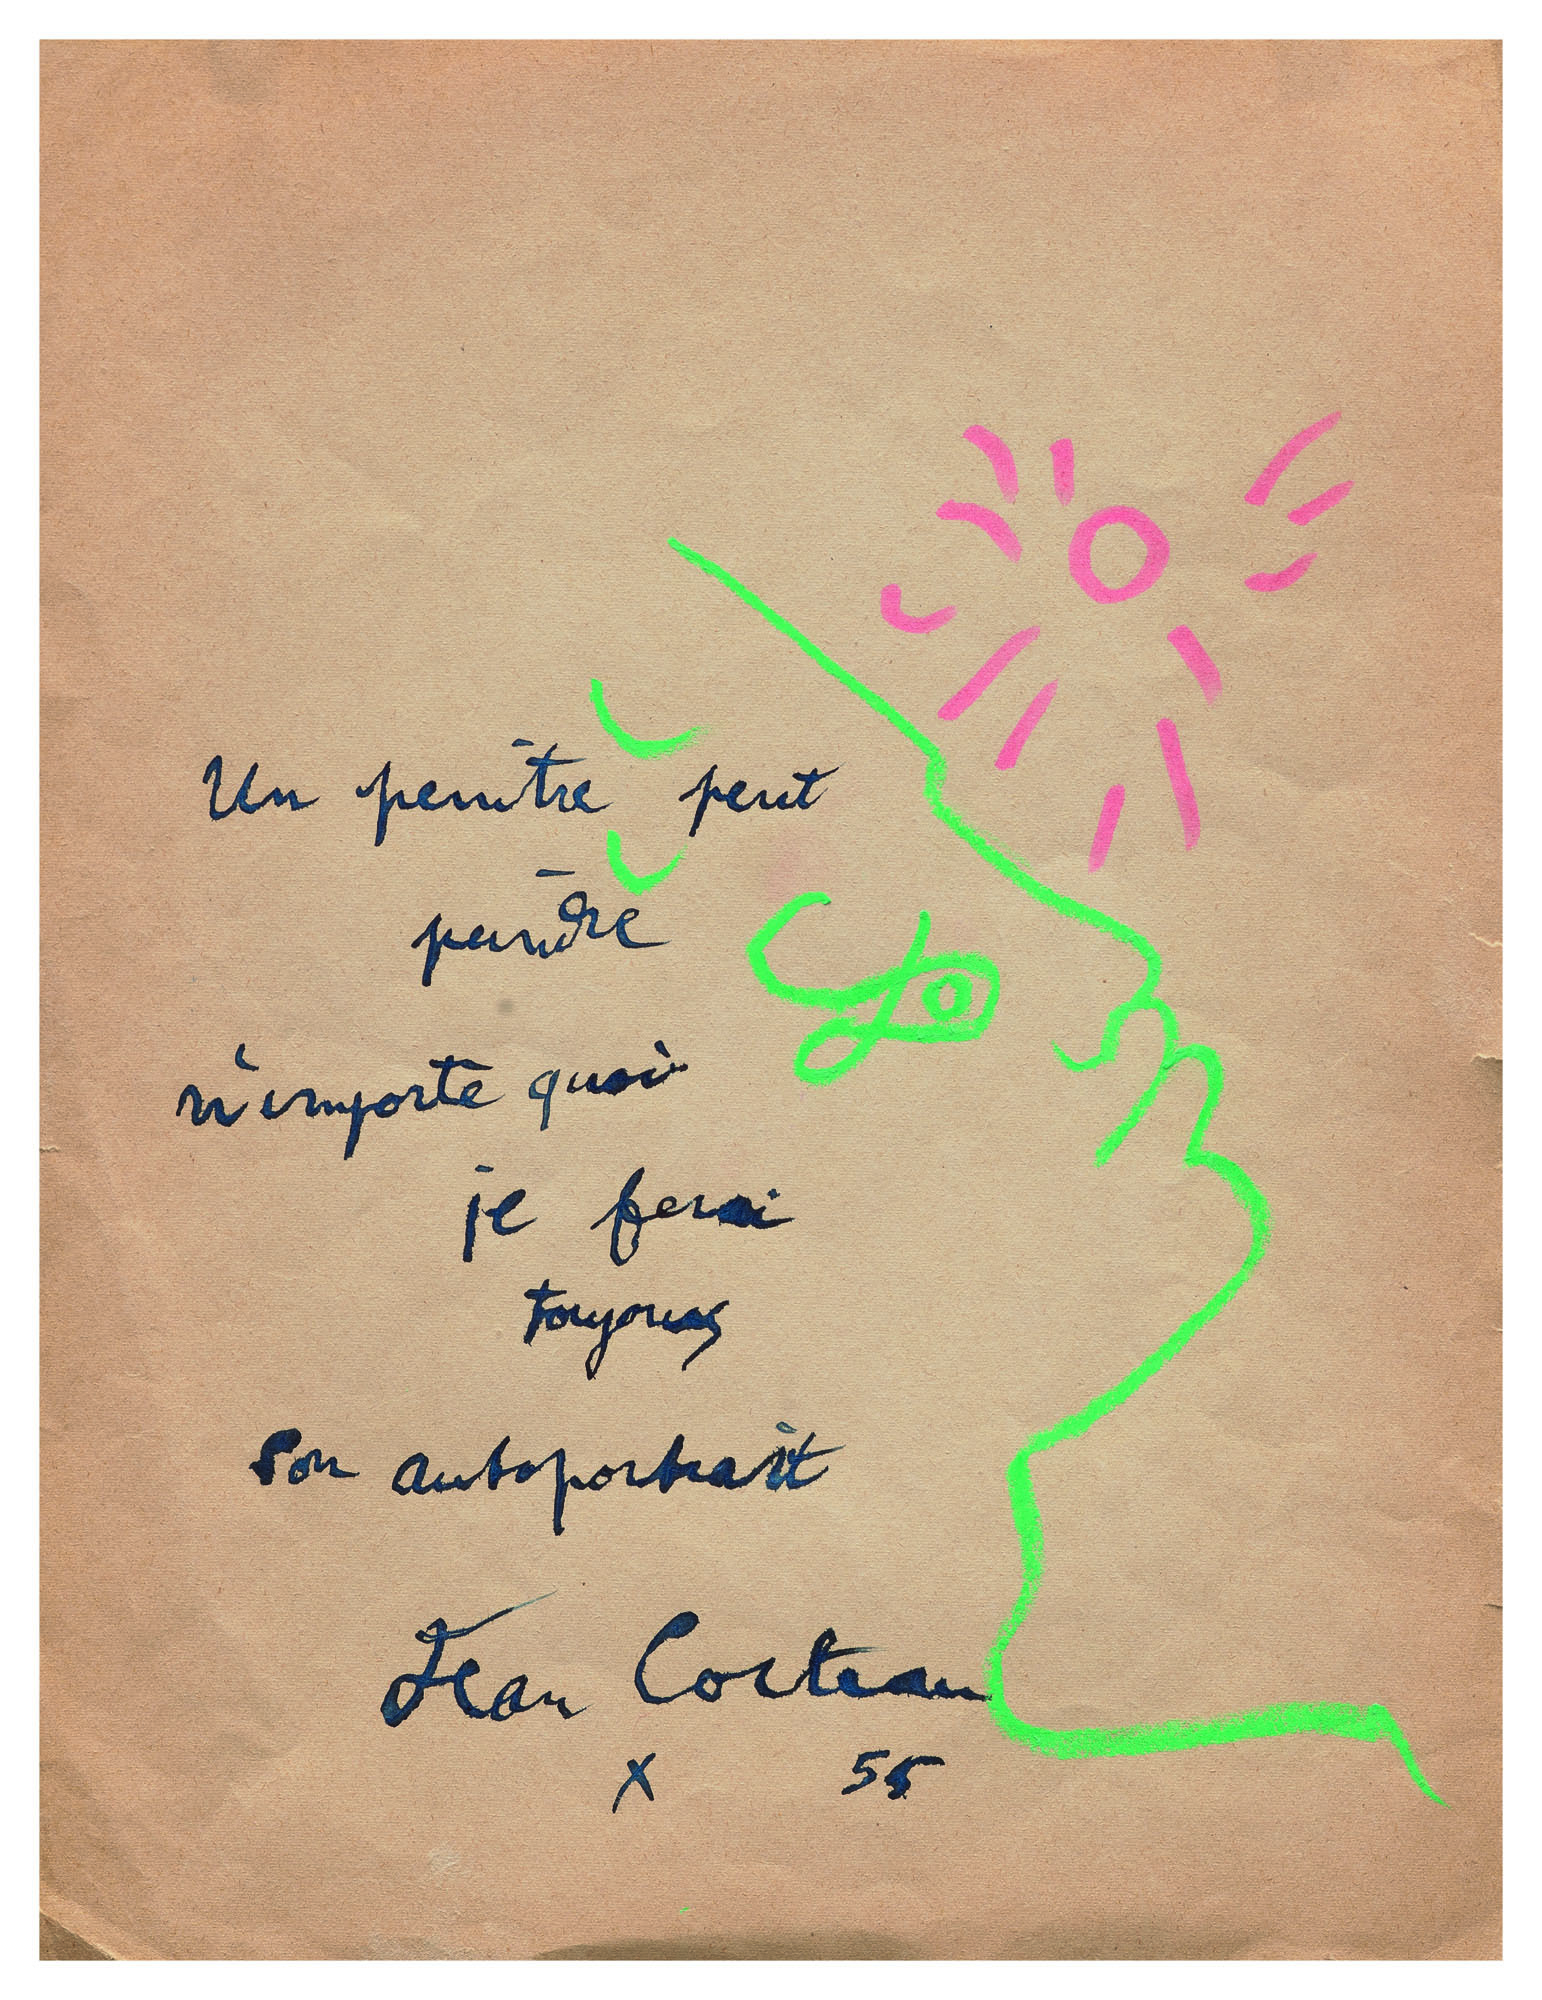 Un peintre peut
peindre
n'importe quoi
je ferai
toujours
son autoportrait
Jean Cocteau
x 55